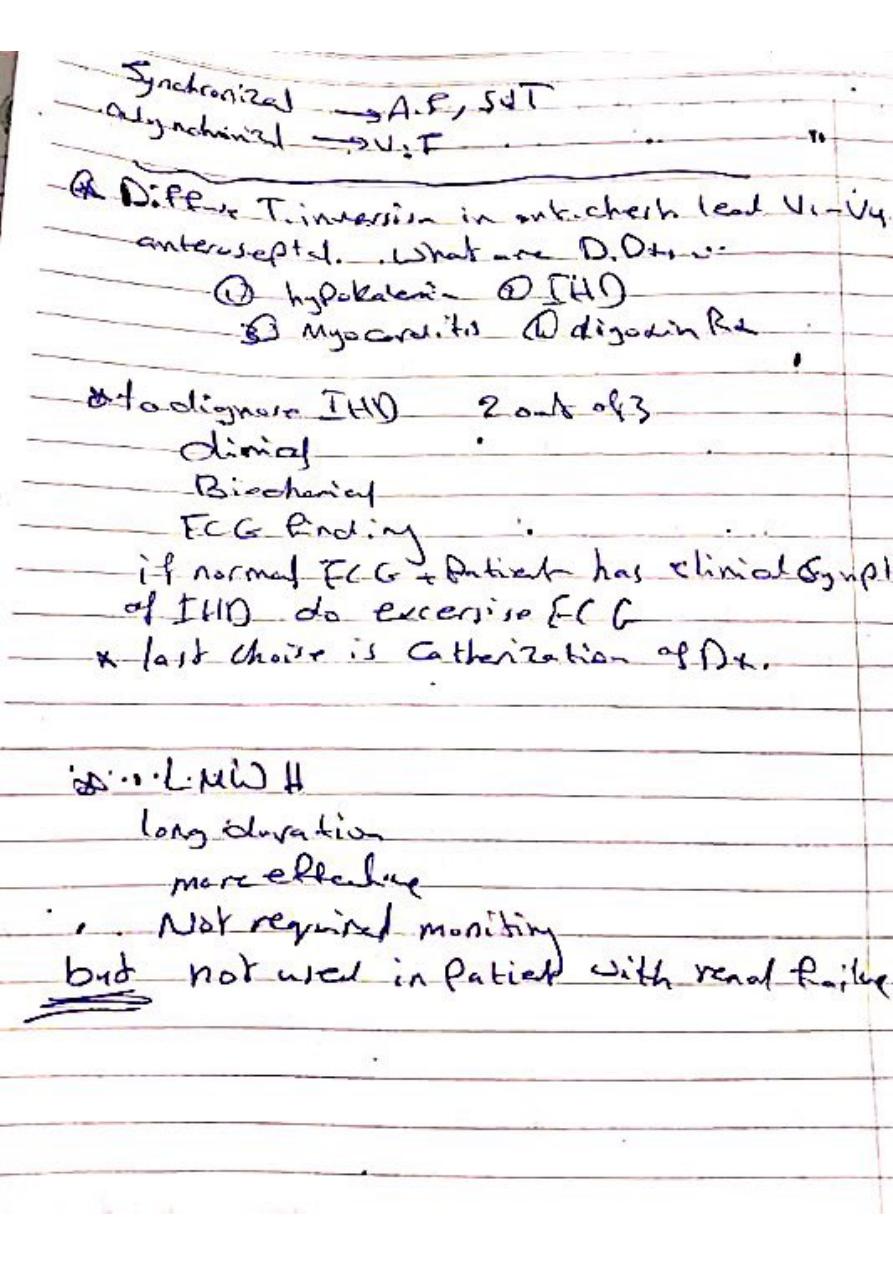 Synchronized → A.F, SVT
→ V.F
Q Diffuse T. inversion in ant. chest lead V1-V4
anteroseptal. What are D.Dx
① hypokalemia ② IHD
③ Myocarditis ④ digoxin Rx
* to dignose IHD 2 out of 3
clinical
Biochemical
ECG finding
if normal ECG + Patient has clinical Sympt
of IHD do excersise ECG
* last choise is Catherization of Dx.
* L.MWH
long duration
more effective
Not required moniting
but not used in Patient with renal failure